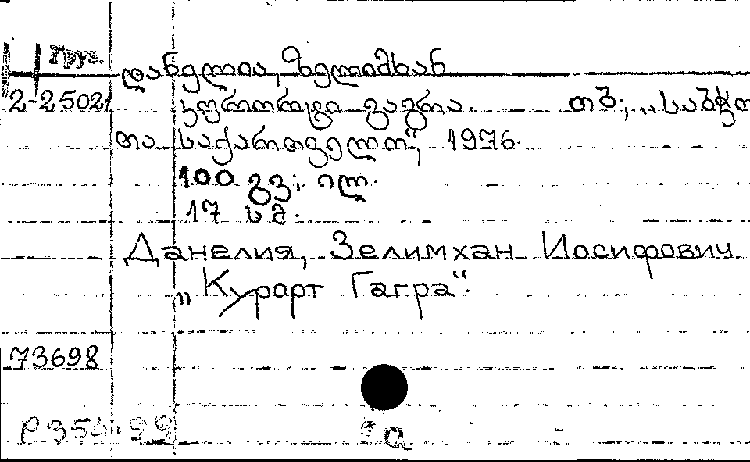 Груз.
დანელია, ზელიმხან
2-25021 კურორტი გაგრა. თბ., „საბჭო
თა საქართველო“, 1976.
100 გვ; ილ.
17 სმ.
Данелия, Зелимхан Иосифович
„Курорт Гагра“.
73698